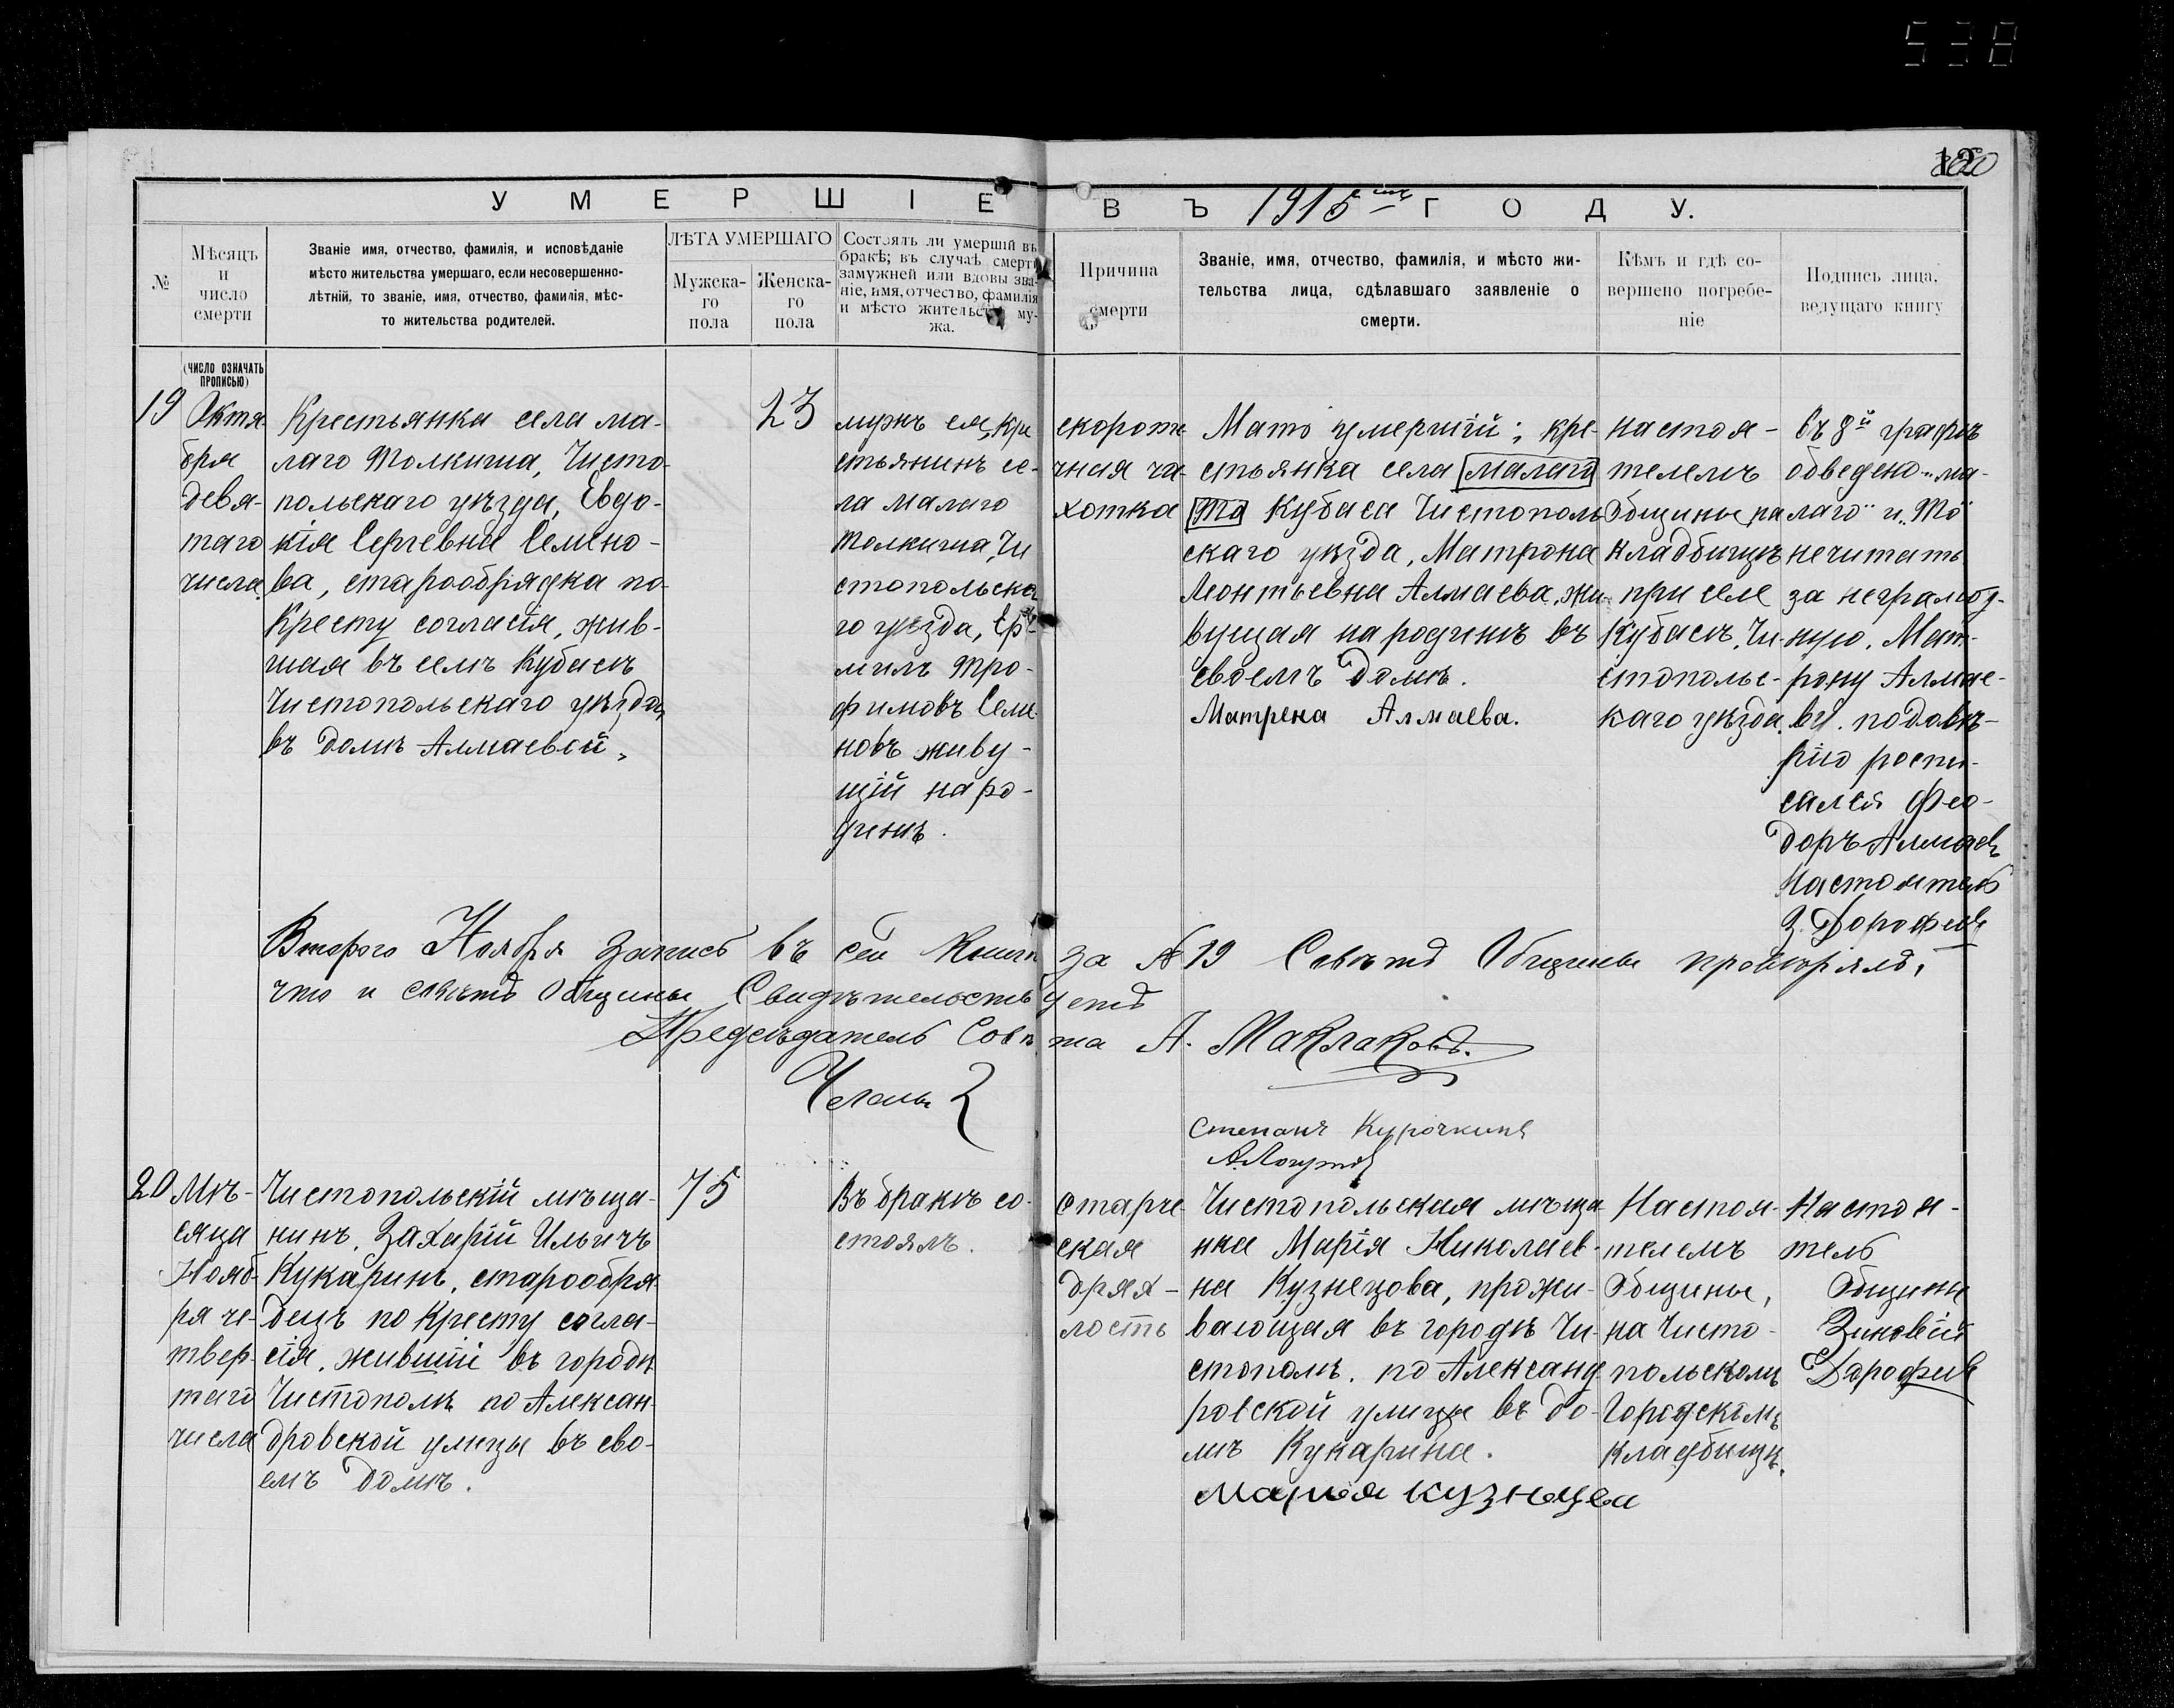 538
12
УМЕРШІЕ ВЪ 1915 ГОДУ.
№
Мѣсяцъ
и
число
смерти
Званіе имя, отчество, фамилія, и исповѣданіе
мѣсто жительства умершаго, если несовершенно-
лѣтній, то званіе, имя, отчество, фамилія, мѣс-
то жительства родителей.
ЛѢТА УМЕРШАГО
Мужска-
го
пола
Женска-
го
пола
Состоялъ ли умершій въ
бракѣ; въ случаѣ смерти
замужней или вдовы зва-
ніе, имя, отчество, фамилія
и мѣсто жительства му-
жа.
Причина
смерти
Званіе, имя, отчество, фамилія, и мѣсто жи-
тельства лица, сдѣлавшаго заявленіе о
смерти.
Кѣмъ и гдѣ со-
вершено погребе-
ніе
Подпись лица,
ведущаго книгу
(ЧИСЛО ОЗНАЧАТЬ
ПРОПИСЬЮ)
19
Октя
бря
девя-
таго
числа
Крестьянка села ма-
лаго Толкиша, Чисто-
польскаго уѣзда, Евдо-
кія Сергевна Семено-
ва, старообрядка по
Кресту согласія, жив-
шая въ селѣ Кубасѣ
Чистопольскаго уѣзда,
въ домѣ Алмаевой,
23
мужъ ея, кре
стьянинъ се-
ла Малаго
Толкиша, Чи
стопольска
го уѣзда, Ер-
милъ Тро-
фимовъ Семе
новъ живу-
щій наро-
динѣ.
скороте
чная ча-
хотка
Мать умершій; кре-
стьянка села малаго
То Кубаса Чистополь
скаго уѣзда, Матрона
Леонтьевна Алмаева, жи-
вущая на родинѣ въ
своемъ домѣ.
Матрена Алмаева.
настоя-
телемъ
Общины, на
кладбищѣ
при селе
Кубасѣ, Чи-
стопольс-
каго уѣзда.
въ 8й графѣ
обведено „ма-
лаго" и „То"
нечитать
за неграмот-
ную. Мат-
рону Алмае-
ву. по довѣ-
рію роспи-
сался Фео-
доръ Алмаевъ
Настоятель
З. Дорофеевъ
Второго Ноября запись въ сей Книги за № 19 Совѣтъ Общины провѣрялъ,
что и совѣтъ Общины Свидѣтельствуетъ
Предсѣдатель Совѣта А. Маклаковъ.
Члены
Степанъ Курочкинъ
20
Мѣ-
сяца
Нояб-
ря че-
твер-
таго
числа
Чистопольскій мѣща-
нинъ, Захарій Ильичъ
Кукаринъ, старообря
децъ по Кресту согла-
сія, живши въ городѣ
Чистополѣ по Алексан-
дровской улицы въ сво-
емъ домѣ.
75
Въ бракѣ со-
стоялъ.
старче
ская
дрях-
лость
Чистопольская мѣща
нка Марія Николаев-
на Кузнецова, прожи-
вающая въ городѣ Чи-
стополѣ, по Александ
ровской улицы въ до-
мѣ Кукарина.
Марья кузнецва
Настоя-
телемъ
Общины,
на Чисто-
польскомъ
Городскомъ
кладбищѣ.
Настоя-
тель
Общины
Зиновій
Дорофеев